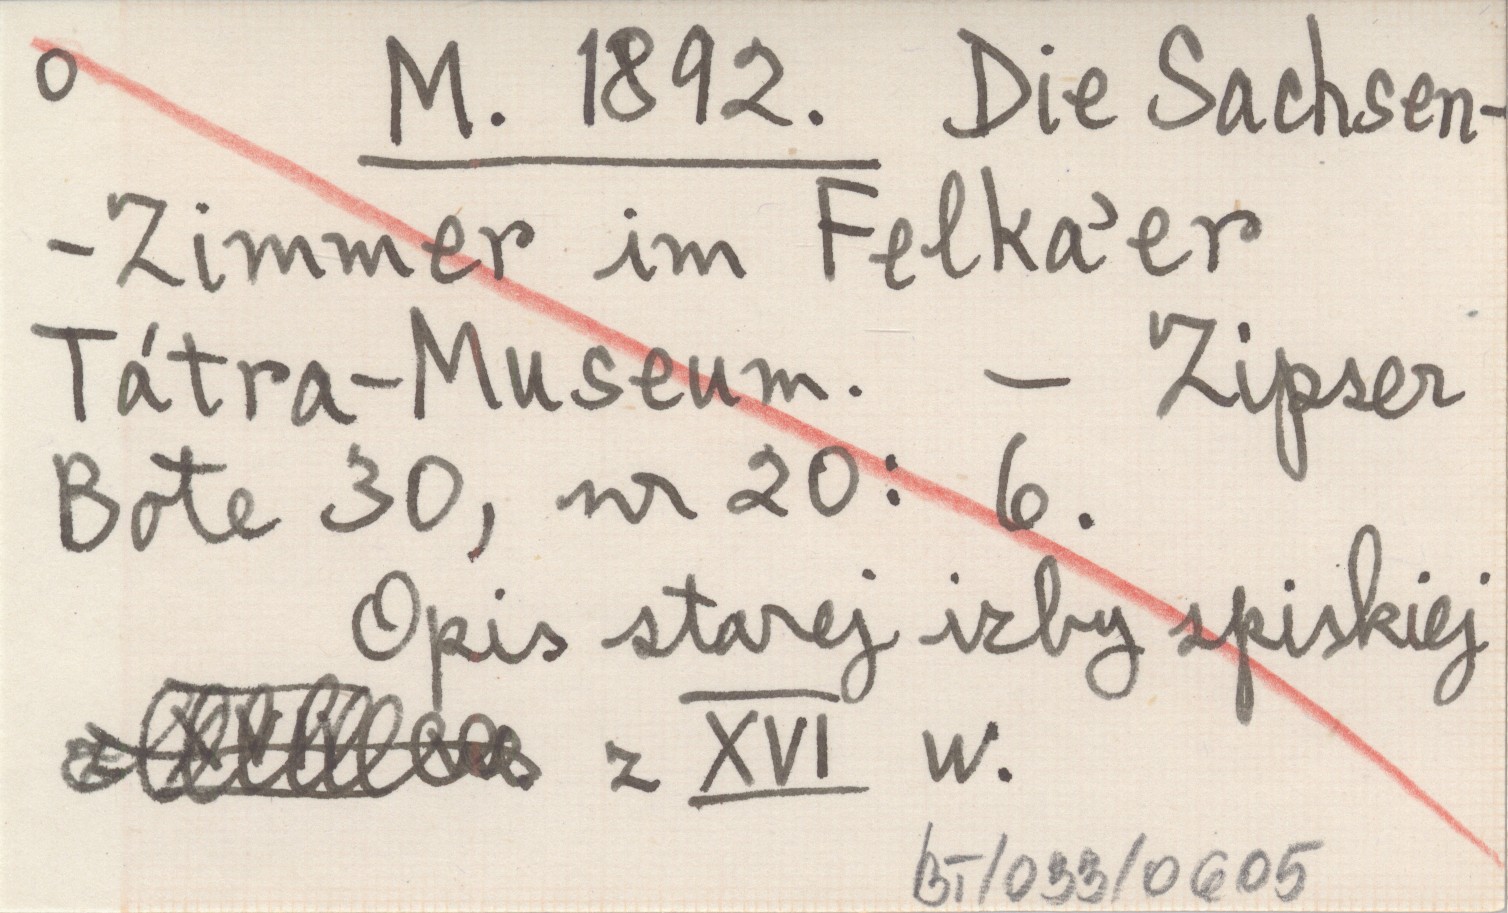 o M. 1892. Die Sachsen-
-Zimmer im Felka'er
Tátra-Museum. – Zipser
Bote 30, nr 20: 6.
Opis starej izby spiskiej
z XVI w.
BT/033/0605